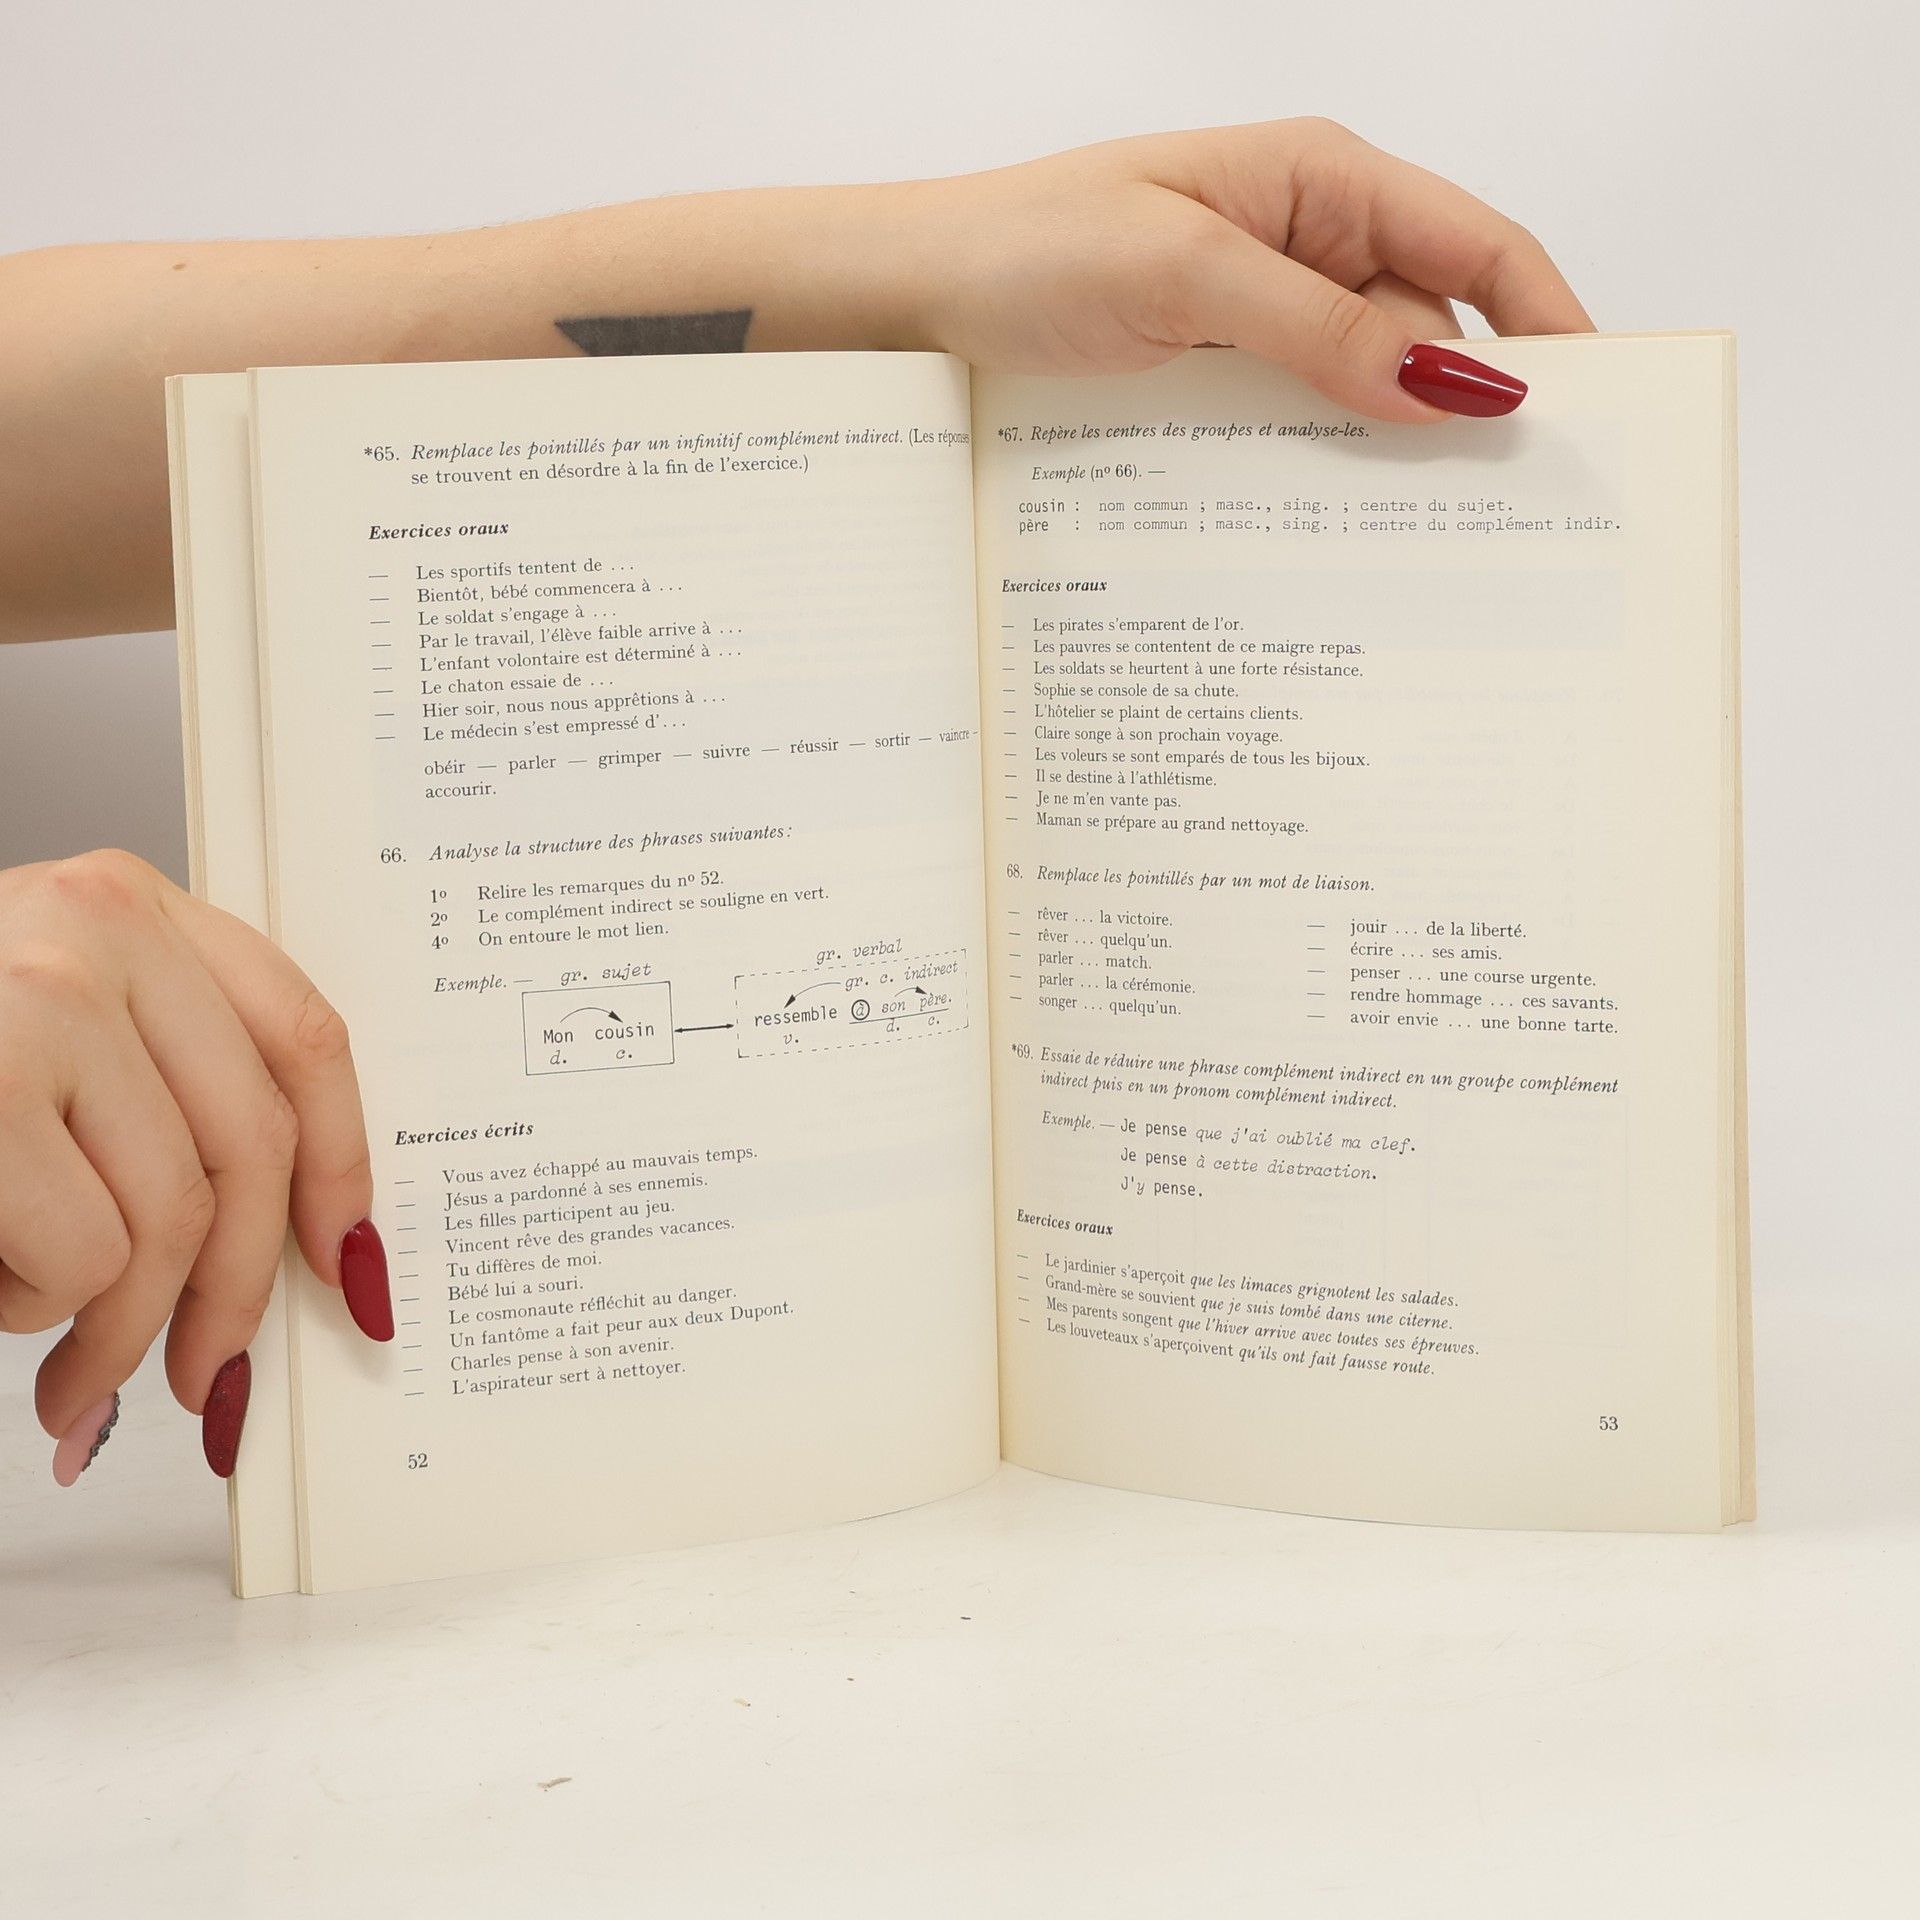 *65. Remplace les pointillés par un infinitif complément indirect. (Les réponses
se trouvent en désordre à la fin de l'exercice.)
Exercices oraux
— Les sportifs tentent de ...
— Bientôt, bébé commencera à ...
— Le soldat s'engage à ...
— Par le travail, l'élève faible arrive à ...
— L'enfant volontaire est déterminé à ...
— Le chaton essaie de ...
— Hier soir, nous nous apprêtions à ...
— Le médecin s'est empressé d'...
obéir — parler — grimper — suivre — réussir — sortir — vaincre —
accourir.
66. Analyse la structure des phrases suivantes:
1º Relire les remarques du nº 52.
2º Le complément indirect se souligne en vert.
4º On entoure le mot lien.
Exemple. — gr. sujet
gr. verbal
gr. c. indirect
Mon cousin
ressemble à son père.
d. c.
v. d. c.
Exercices écrits
— Vous avez échappé au mauvais temps.
— Jésus a pardonné à ses ennemis.
— Les filles participent au jeu.
— Vincent rêve des grandes vacances.
— Tu diffères de moi.
— Bébé lui a souri.
— Le cosmonaute réfléchit au danger.
— Un fantôme a fait peur aux deux Dupont.
— Charles pense à son avenir.
— L'aspirateur sert à nettoyer.
52
*67. Repère les centres des groupes et analyse-les.
Exemple (nº 66). —
cousin : nom commun ; masc., sing. ; centre du sujet.
père : nom commun ; masc., sing. ; centre du complément indir.
Exercices oraux
— Les pirates s'emparent de l'or.
— Les pauvres se contentent de ce maigre repas.
— Les soldats se heurtent à une forte résistance.
— Sophie se console de sa chute.
— L'hôtelier se plaint de certains clients.
— Claire songe à son prochain voyage.
— Les voleurs se sont emparés de tous les bijoux.
— Il se destine à l'athlétisme.
— Je ne m'en vante pas.
— Maman se prépare au grand nettoyage.
68. Remplace les pointillés par un mot de liaison.
— rêver ... la victoire.
— rêver ... quelqu'un.
— parler ... match.
— parler ... la cérémonie.
— songer ... quelqu'un.
— jouir ... de la liberté.
— écrire ... ses amis.
— penser ... une course urgente.
— rendre hommage ... ces savants.
— avoir envie ... une bonne tarte.
*69. Essaie de réduire une phrase complément indirect en un groupe complément
indirect puis en un pronom complément indirect.
Exemple. — Je pense que j'ai oublié ma clef.
Je pense à cette distraction.
J'y pense.
Exercices oraux
— Le jardinier s'aperçoit que les limaces grignotent les salades.
— Grand-mère se souvient que je suis tombé dans une citerne.
— Mes parents songent que l'hiver arrive avec toutes ses épreuves.
— Les louveteaux s'aperçoivent qu'ils ont fait fausse route.
53